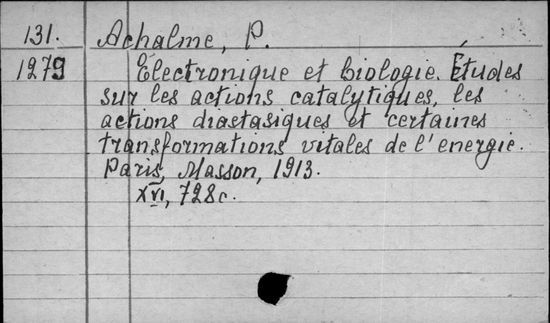 131. Achalme, P.
1279 Electronique et biologie. Études
sur les actions catalytiques, les
actions diastasiques et certaines
transformations vitales de l'energie.
Paris, Masson, 1913.
XVI, 728c.